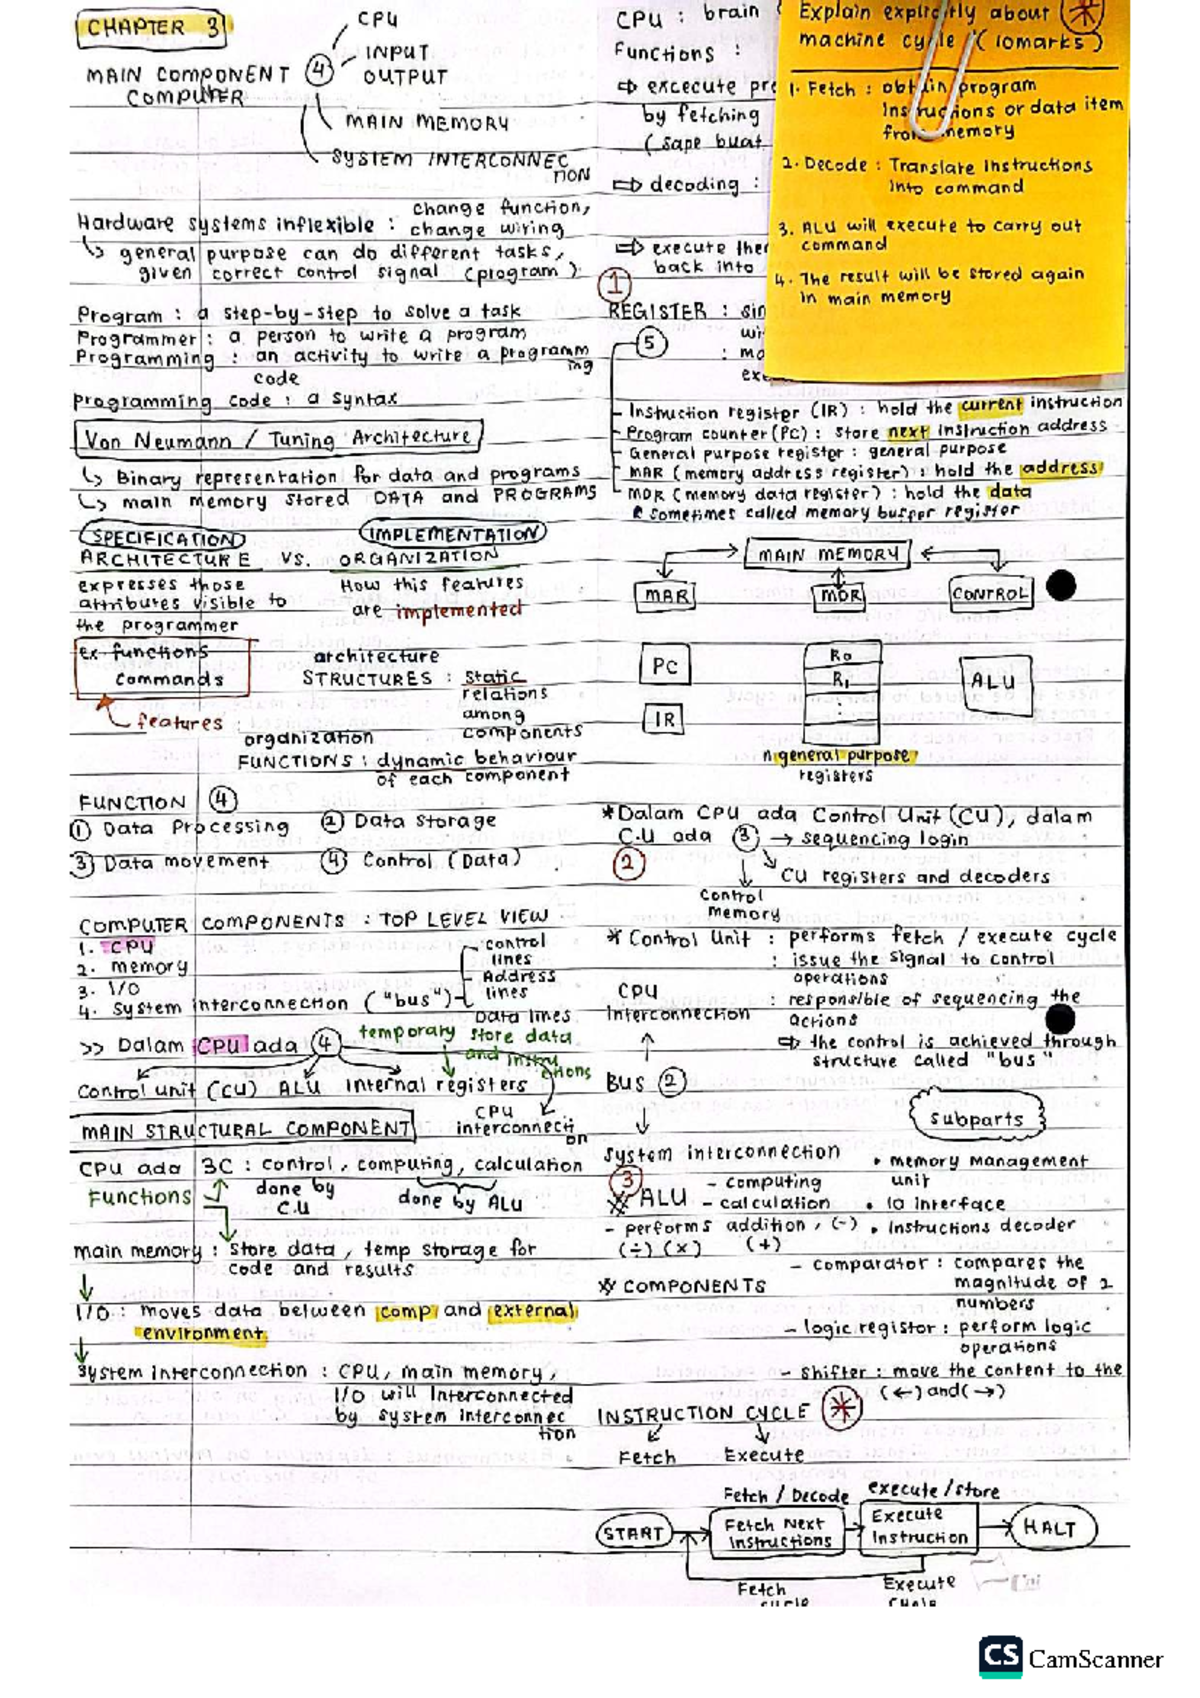 CHAPTER 3
MAIN COMPONENT
COMPUTER
4
CPU
INPUT
OUTPUT
MAIN MEMORY
SYSTEM INTERCONNEC
TION
Hardware systems inflexible : change function,
change wiring
↳ general purpose can do different tasks,
given correct control signal (program)
Program : a step-by-step to solve a task
Programmer : a person to write a program
Programming : an activity to write a programm
ing
code
programming code : a syntax
Von Neumann / Tuning Architecture
↳ Binary representation for data and programs
↳ main memory stored DATA and PROGRAMS
SPECIFICATION
IMPLEMENTATION
ARCHITECTURE VS. ORGANIZATION
expresses those
attributes visible to
the programmer
How this features
are implemented
ex functions
commands
features
architecture
STRUCTURES : static
relations
among
components
organization
FUNCTIONS : dynamic behaviour
of each component
FUNCTION 4
1 Data Processing
2 Data storage
3 Data movement
4 Control (Data)
COMPUTER COMPONENTS : TOP LEVEL VIEW
1. CPU
2. memory
3. I/O
4. System interconnection ("bus")
control
lines
Address
lines
Data lines
>> Dalam CPU ada 4
temporary store data
and instru
ctions
Control unit (CU) ALU Internal registers
CPU
interconnecti
on
MAIN STRUCTURAL COMPONENT
CPU ada 3C : control, computing, calculation
Functions
done by
C.U
done by ALU
main memory : store data, temp storage for
code and results
I/O : moves data between comp and external
environment
System interconnection : CPU, main memory,
I/O will interconnected
by system interconnec
tion
CPU : brain
Functions :
⇒ excecute pr
by fetching
(sape buat
⇒ decoding :
⇒ execute ther
back into
1
REGISTER : sin
wi
: mo
exe
5
Explain explicitly about
machine cycle (10marks)
*
1. Fetch : obtain program
Instructions or data item
from memory
2. Decode : Translate Instructions
Into command
3. ALU will execute to carry out
command
4. The result will be stored again
in main memory
- Instruction register (IR) : hold the current instruction
- Program counter (PC) : store next instruction address
- General purpose register : general purpose
- MAR (memory address register) : hold the address
- MDR (memory data register) : hold the data
sometimes called memory buffer register
MAIN MEMORY
MAR
MDR
CONTROL
PC
R0
R1
ALU
IR
n general purpose
registers
*Dalam CPU ada Control Unit (CU), dalam
C.U ada 3 → sequencing login
2
CU registers and decoders
control
memory
* Control Unit : performs fetch / execute cycle
: issue the signal to control
operations
: responsible of sequencing the
actions
⇒ the control is achieved through
structure called "bus"
CPU
interconnection
↑
BUS 2
↓
system interconnection
subparts
• memory management
unit
• IO interface
• Instructions decoder
3
* ALU - computing
- calculation
- performs addition, (-)
(÷) (x) (+)
* COMPONENTS
- comparator : compares the
magnitude of 2
numbers
- logic register : perform logic
operations
- shifter : move the content to the
(←) and (→)
INSTRUCTION CYCLE *
Fetch Execute
Fetch / Decode execute / store
START
Fetch Next
Instructions
Execute
Instruction
HALT
Fetch
cycle
Execute
cycle
CS CamScanner